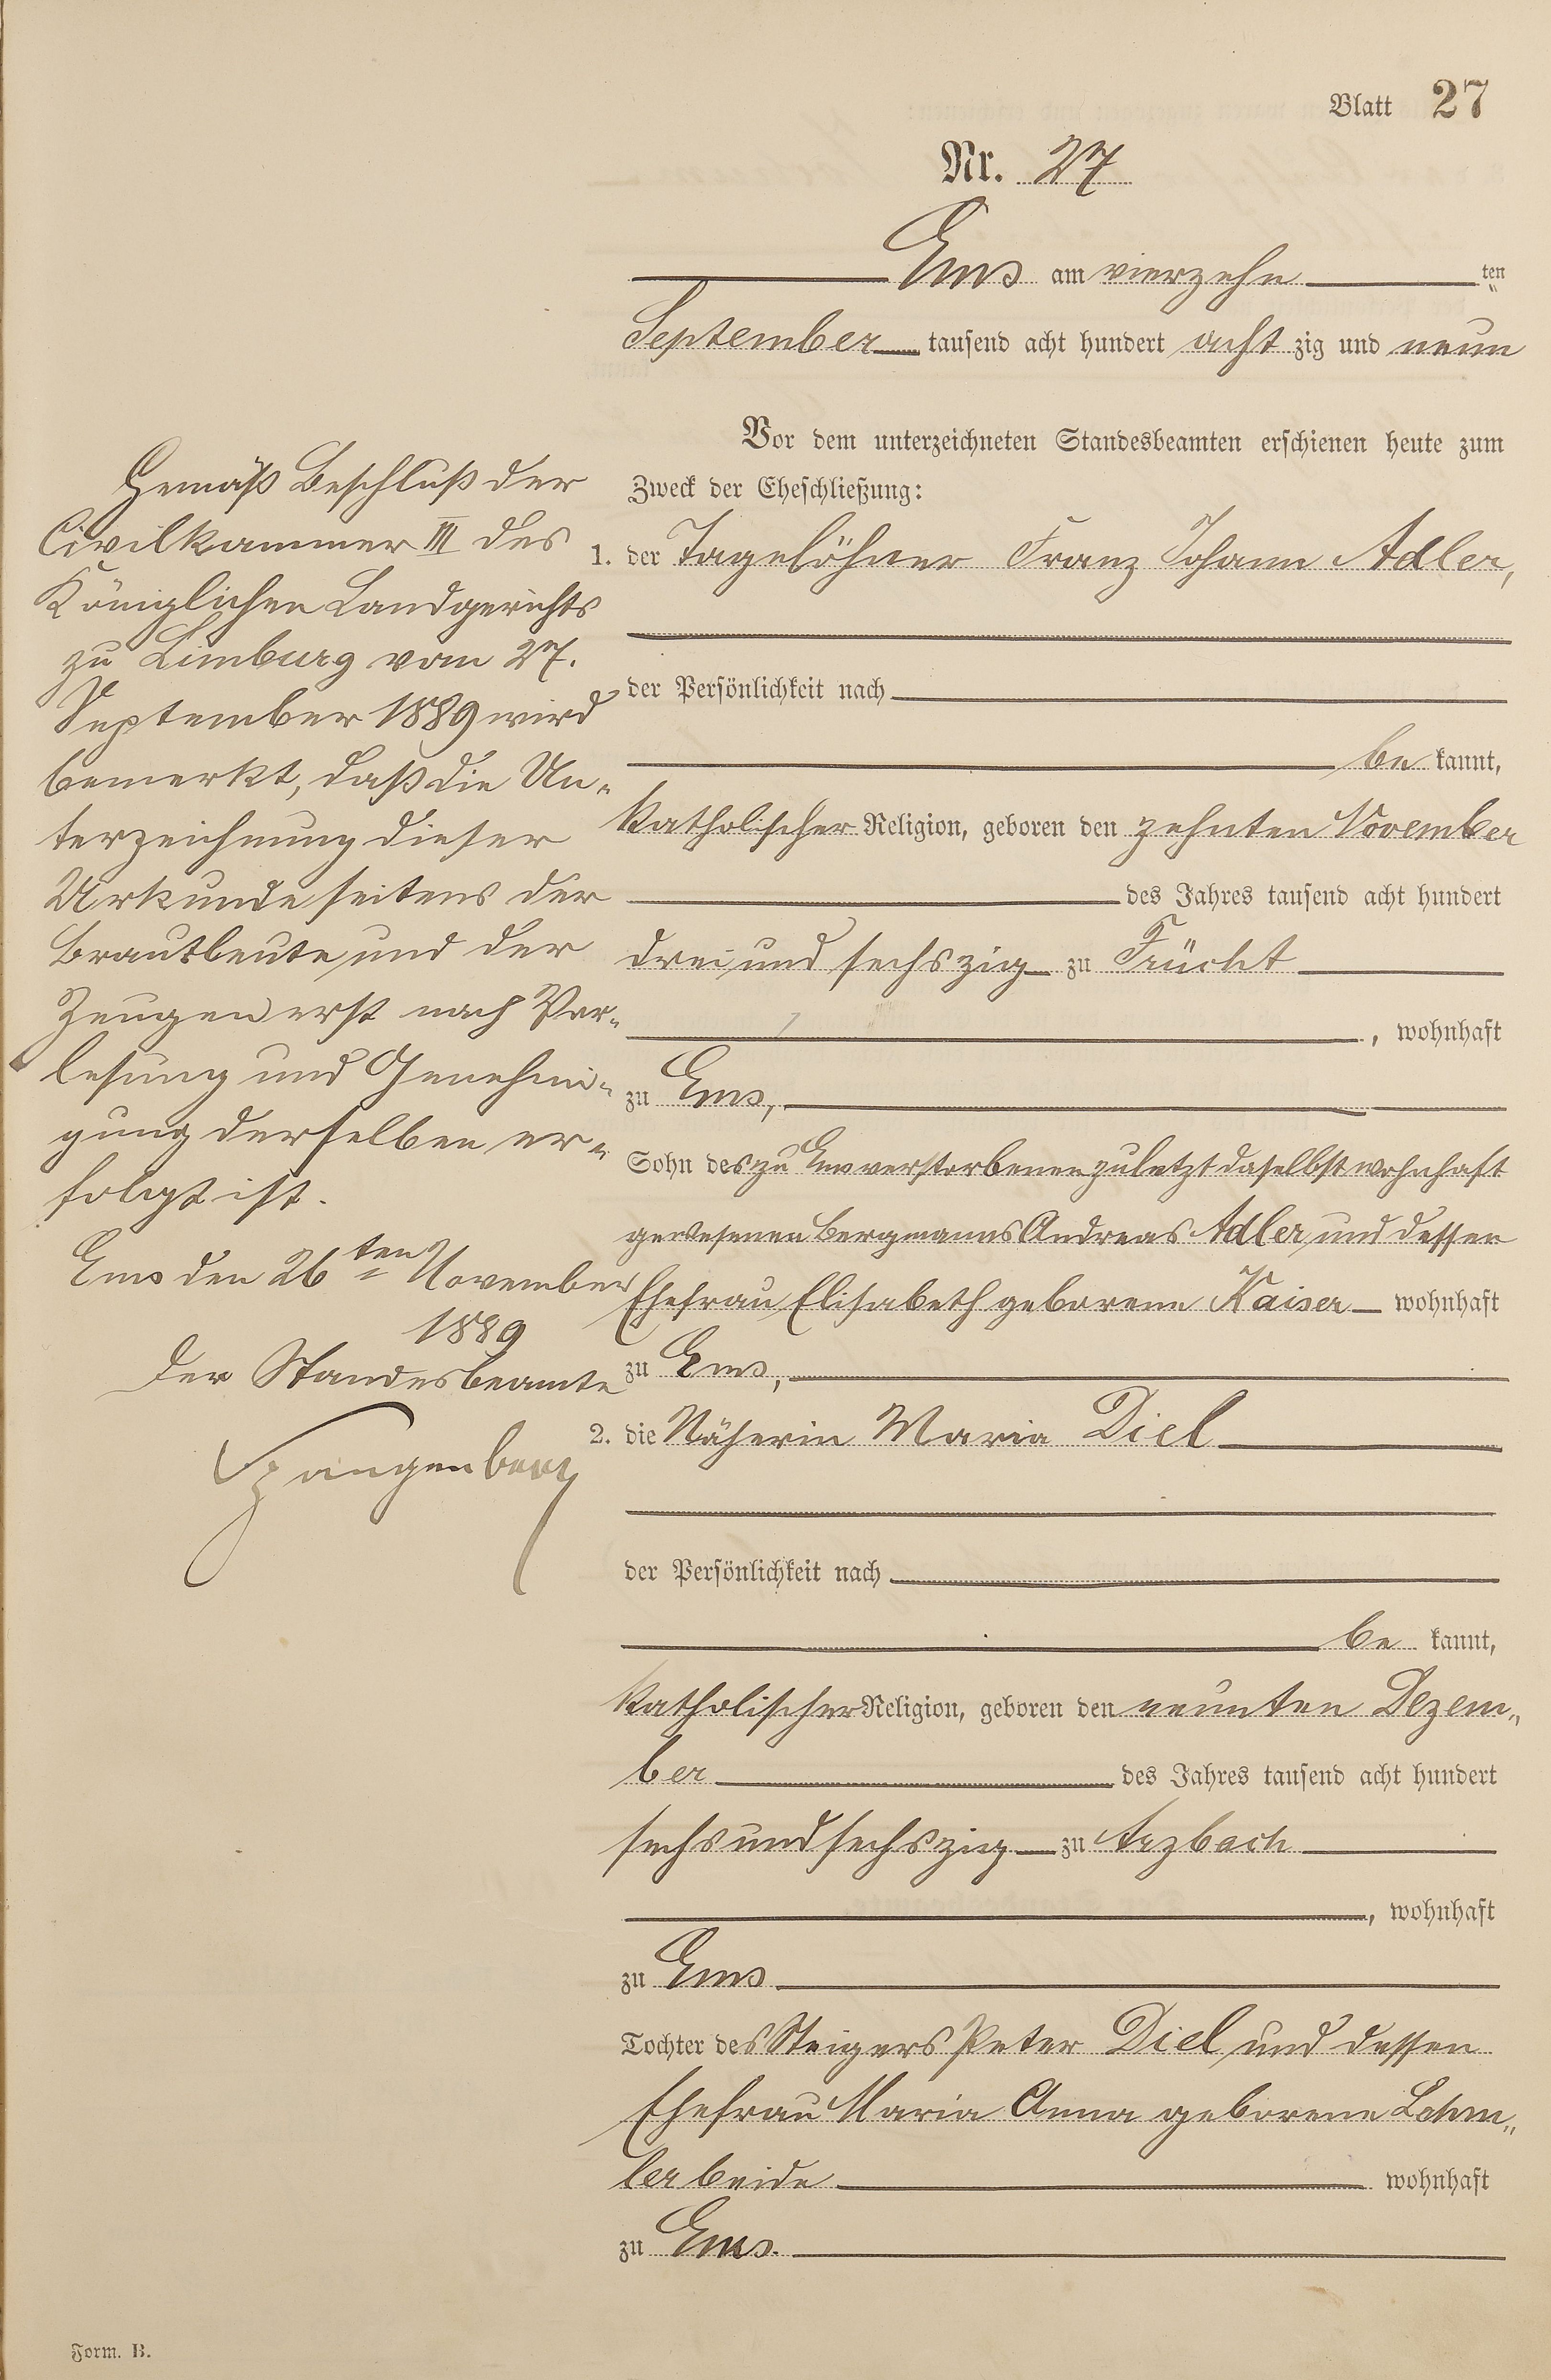 Blatt 27
Nr. 27
Ems am vierzehn ten
September tausend acht hundert acht zig und neun
Vor dem unterzeichneten Standesbeamten erschienen heute zum
Zweck der Eheschließung:
1. der Tagelöhner Franz Johann Adler,
der Persönlichkeit nach
be kannt,
katholischer Religion, geboren den zehnten November
des Jahres tausend acht hundert
drei und sechszig zu Frücht
, wohnhaft
zu Ems,
Sohn des zu Ems verstorbenen zuletzt daselbst wohnhaft
gewesenen Bergmanns Andreas Adler und dessen
Ehefrau Elisabeth geborene Kaiser wohnhaft
zu Ems,
2. die Näherin Maria Diel
der Persönlichkeit nach
be kannt,
katholischer Religion, geboren den neunten Dezem„
ber des Jahres tausend acht hundert
sechs und sechszig zu Arzbach
, wohnhaft
zu Ems
Tochter des Steigers Peter Diel und dessen
Ehefrau Maria Anna geborene Lohm„
ler beide wohnhaft
zu Ems.
Gemäß Beschluß der
Civilkammer III des
Königlichen Landgerichts
zu Limburg vom 27.
September 1889 wird
bemerkt, daß die Un„
terzeichnung dieser
Urkunde seitens der
Brautleute und der
Zeugen erst nach Vor„
lesung und Genehmi„
gung derselben er„
folgt ist.
Ems den 26ten November
1889
Der Standesbeamte
Spangenberg
Form. B.